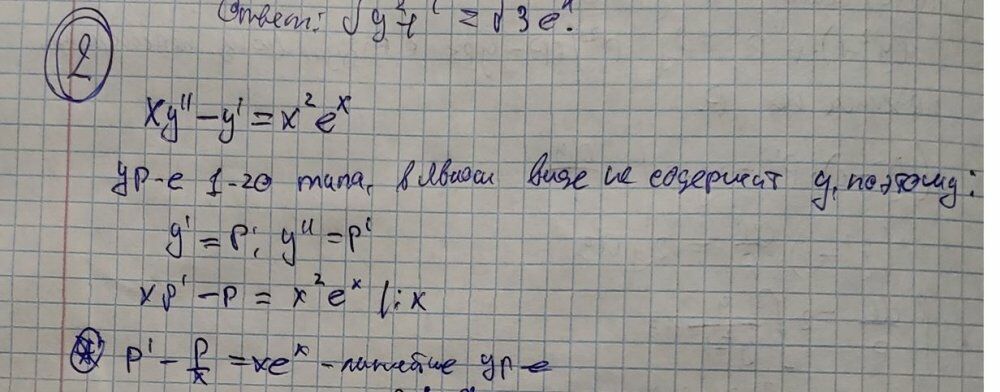 Ответ:
2
xy'' - y' = x² eˣ
ур-е 1-го типа, в явном виде не содержит y, поэтому:
y' = p; y'' = p'
xp' - p = x² eˣ |: x
* p' - p/x = xeˣ - линейное ур-е